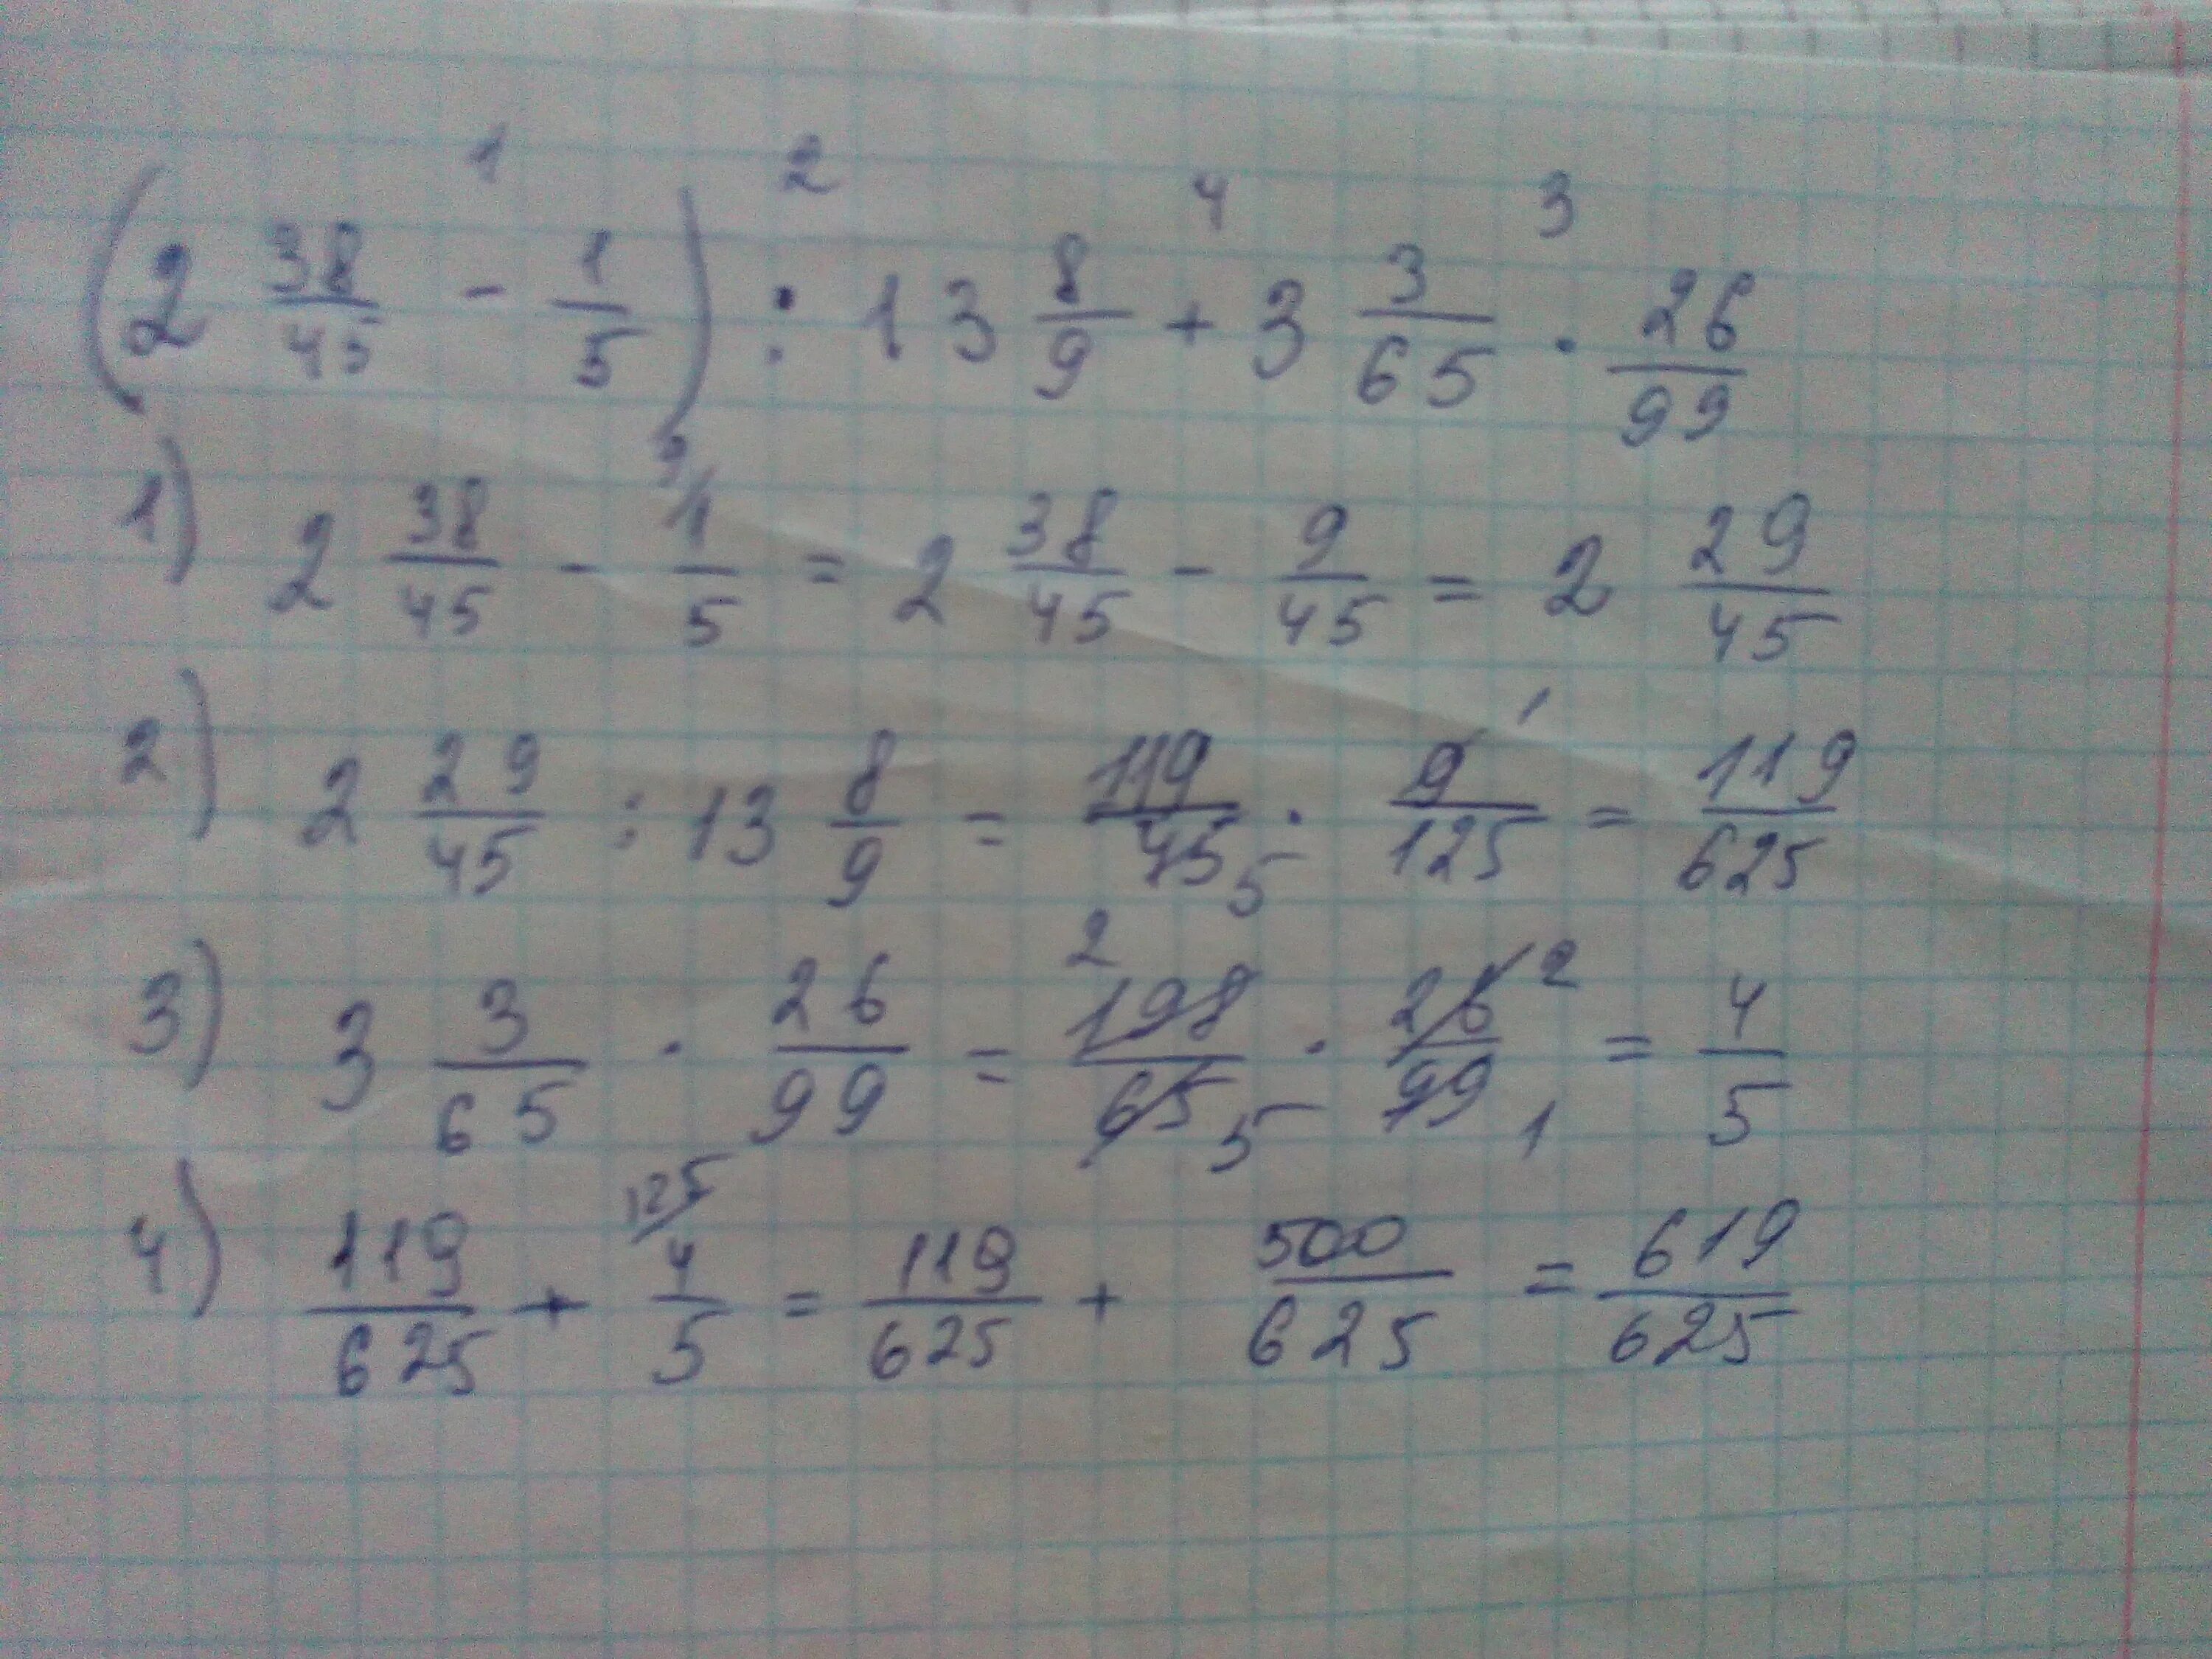 (2 38/45 - 1/5) : 13 8/9 + 3 3/65 · 26/99
1) 2 38/45 - 1/5 = 2 38/45 - 9/45 = 2 29/45
2) 2 29/45 : 13 8/9 = 119/45 · 9/125 = 119/625
3) 3 3/65 · 26/99 = 198/65 · 26/99 = 4/5
4) 119/625 + 4/5 = 119/625 + 500/625 = 619/625